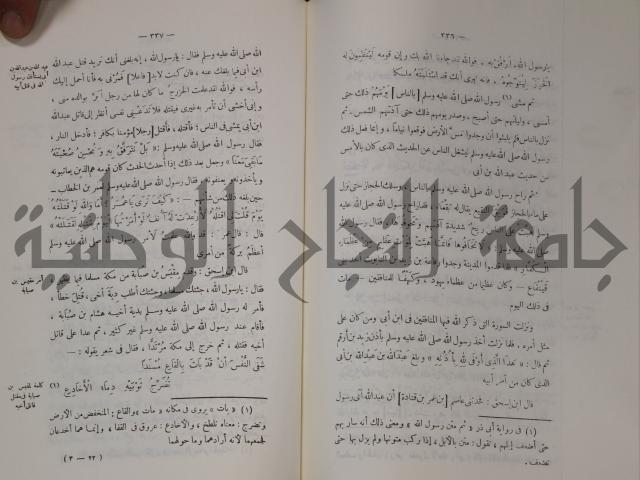 — ٣٣٦ —
يارسول الله، ارْفُقْ به، فوالله لقد جاءنا الله بك وإن قومه لينظمون له
الخرز ليتوجوه، فإنه ليرى أنك قد استلبته ملكا
ثم مشى (١) رسول الله صلى الله عليه وسلم [بالناس] يومهم ذلك حتى
أمسى، وليلتهم حتى أصبح، وصدر يومهم ذلك حتى آذتهم الشمس، ثم
نزل بالناس فلم يلبثوا أن وجدوا مس الأرض فوقعوا نياما، وإنما فعل ذلك
رسول الله صلى الله عليه وسلم ليشغل الناس عن الحديث الذى كان بالأمس
من حديث عبد الله بن أبى
ثم راح رسول الله صلى الله عليه وسلم بالناس، وسلك الحجاز حتى نزل
على ماء بالحجاز
شديدة آذتهم وتخوفوها، فقال رسول الله
صلى الله عليه وسلم
قدموا المدينة وجدوا رفاعة بن زيد بن التابوت أحد بنى
قينقاع — وكان عظيما من عظماء يهود، وكهفا للمنافقين — مات
فى ذلك اليوم
ونزلت السورة التى ذكر الله فيها المنافقين فى ابن أبى ومن كان على
مثل أمره، فلما نزلت أخذ رسول الله صلى الله عليه وسلم بأذن زيد بن أرقم
ثم قال: « هذا الذى أوفى لله بأذنه » وبلغ عبد الله بن عبد الله بن أبى
الذى كان من أمر أبيه
قال ابن إسحق: فحدثنى عاصم [بن عمر بن قتادة] أن عبد الله أتى رسول
(١) فى رواية أبى ذر « ثم متن رسول الله » ومعنى ذلك أنه سار بهم
حتى أضعف إبلهم، تقول: متن بالابل، إذا ركب متونها ولم يزل بها حتى
تضعف.
— ٣٣٧ —
الله صلى الله عليه وسلم فقال: يارسول الله، إنه بلغنى أنك تريد قتل عبد الله
ابن أبى فيما بلغك عنه، فان كنت لابد [فاعلا] فمرنى به فأنا أحمل إليك
رأسه، فوالله لقد علمت الخزرج ما كان لها من رجل أبر بوالده منى،
وإنى أخشى أن تأمر به غيرى فيقتله فلا تدعنى نفسى أنظر إلى قاتل عبد الله
ابن أبى يمشى فى الناس؛ فأقتله، فأقتل [رجلا] مؤمنا بكافر؛ فأدخل النار،
فقال رسول الله صلى الله عليه وسلم: « بل نترفق به ونحسن صحبته
ما بقى معنا » وجعل بعد ذلك إذا أحدث الحدث كان قومه هم الذين يعاتبونه
ويأخذونه ويعنفونه، فقال رسول الله صلى الله عليه وسلم لعمر بن الخطاب —
حين بلغه ذلك من شأنهم —: « كيف ترى يا عمر؟ أما والله لو قتلته
يوم قلت لى اقتله لأرعدت له آنف لو أمرتها اليوم بقتله لقتلته »
قال: قال عمر: قد والله علمت لأمر رسول الله صلى الله عليه وسلم
أعظم بركة من أمرى
قال ابن إسحق: وقدم مقيس بن صبابة من مكة مسلما فيما يظهر
فقال: يارسول الله، جئتك مسلما، وجئتك أطلب دية أخى، قتل خطأ،
فأمر له رسول الله صلى الله عليه وسلم بدية أخيه هشام بن صبابة،
فأقام عند رسول الله صلى الله عليه وسلم غير كثير، ثم عدا على قاتل
أخيه فقتله، ثم خرج إلى مكة مرتدا، فقال فى شعر يقوله: —
شفى النفس أن قد بات بالقاع مسندا
تضرج ثوبيه دماء الأخادع (١)
(١) « بات » يروى فى مكانه « مات » والقاع: المنخفض من الارض
وتضرج: معناه تلطخ، والأخادع: عروق فى القفا، وإنما هما أخدعان
فجمعهما لأنه أرادهما وما حولهما
(٢٢ — ٣)
جامعة النجاح الوطنية